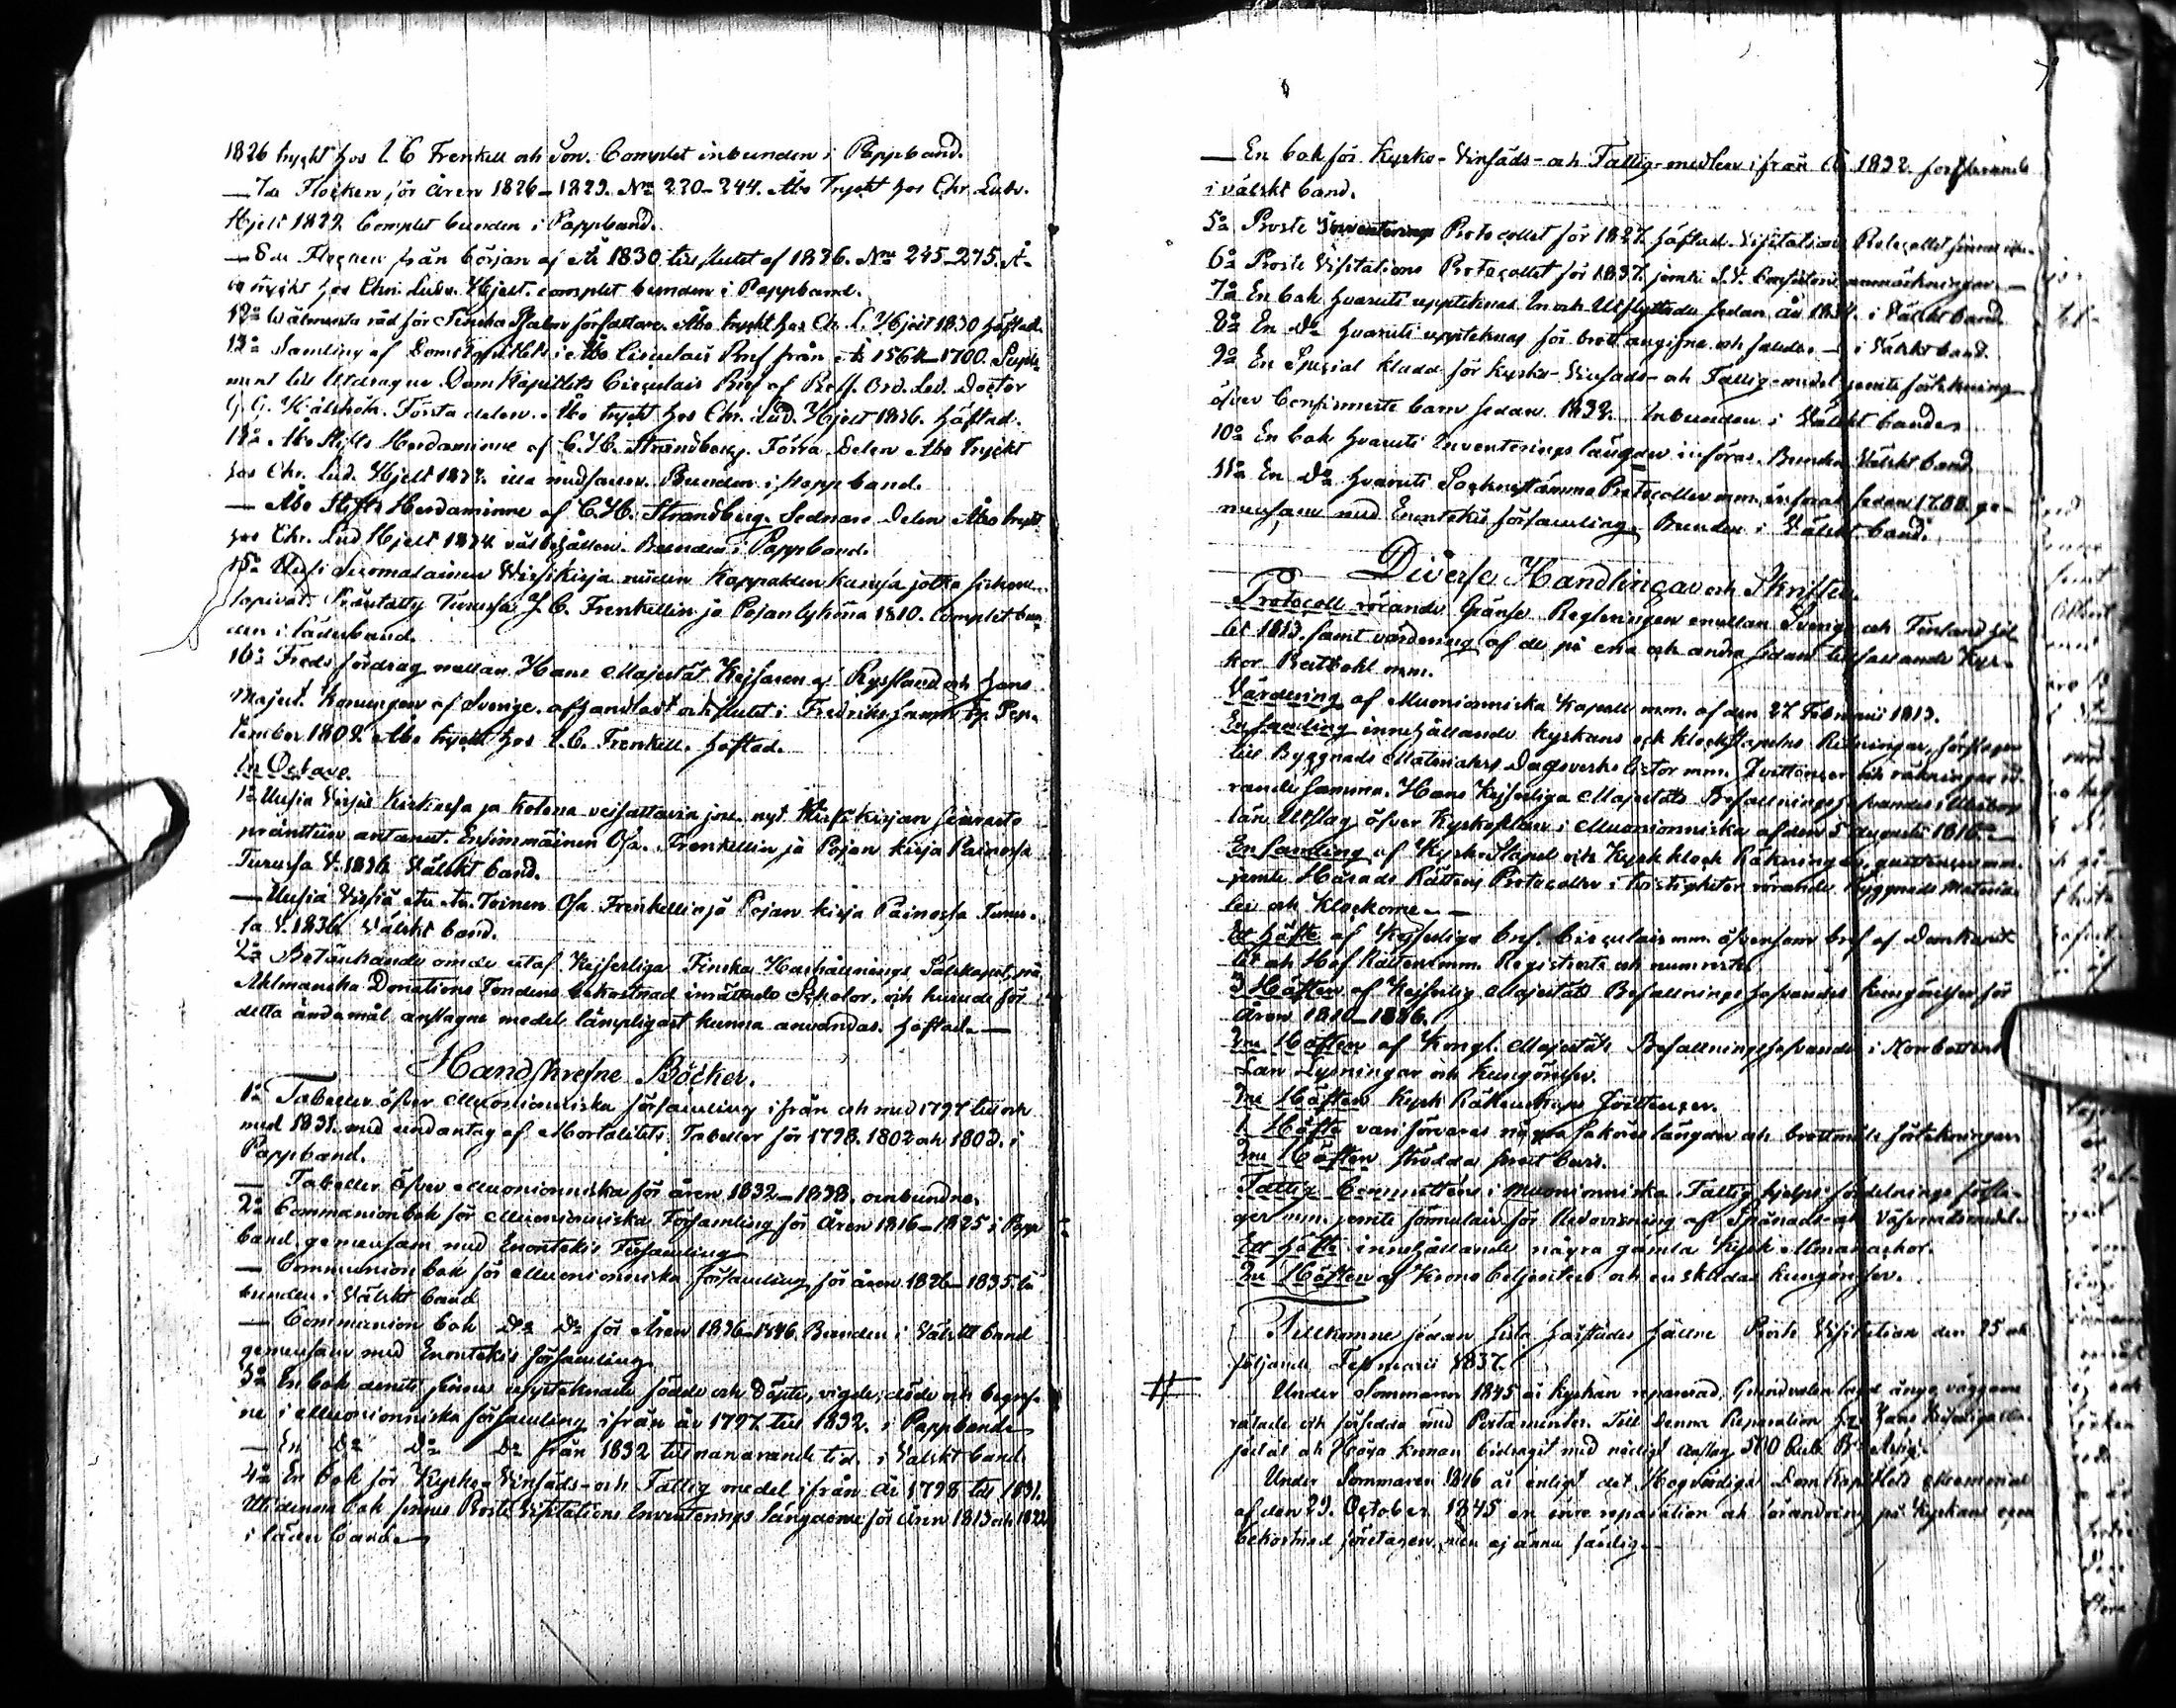 1826 tryckt hos I. C. Frenkell och Son. Complet inbunden i Pappband.
— 7de Flocken för åren 1826–1829. No 220–244. Åbo Tryckt hos Chr. Ludv.
Hjelt 1829. Complet bunden i Pappband.
— 8de Flocken från början af år 1830 till slutet af 1836. No 245–275. Å-
bo tryckt hos Chr. Ludv. Hjelt. complet bunden i Pappband.
12o Wälmenta råd för Finska Psalm författare. Åbo tryckt hos Ch. L. Hjelt 1830 häftad.
13o Samling af Domcapitlets i Åbo Circulair Bref från år 1564–1700. Supple-
ment till Utdragne Dom Kapitlets Circulair Bref af Proff. Ord. Led. Doctor
Första delen. Åbo tryckt hos Chr. Lud. Hjelt 1836. häftad.
14o Åbo Stifts Herdaminne af C. H. Strandberg. Förra Delen Åbo tryckt
hos Chr. Lud. Hjelt 1832. illa medfaren. Bunden i pappband.
— Åbo Stifts Herdaminne af C. H. Strandberg. Sednare Delen Åbo tryckt
hos Chr. Lud Hjelt 1834 väl behållen. Bunden i Pappband.
15o Uusi Suomalainen Wirsikirja niiden Kappalden kansa jotka siihen
sopivat. Präntätty Turussa J. C. Frenkellin ja Pojan tykönä 1810. Complet bun-
den i läderband.
16o Freds fördrag mellan Hans Majestät Kejsaren af Ryssland och hans
Majest. Konungen af Sverige. afhandladt och slutet i Fredrikshamn Sep-
tember 1809. Åbo tryckt hos I. C. Frenkell. häftad.
In Octavo.
1o Uusia Virsiä Kirkossa ja kotona veisattavia
pränttiin antanut. Ensimmäinen Osa. Frenkellin ja Pojan kirja Painossa
Turussa V. 1836 Välskt band.
— Uusia Virsiä etc. etc. Toinen Osa Frenkellin ja Pojan kirja Painossa Turus-
sa V. 1836. Välskt band.
2o Betänkande om de utaf Kejserliga Finska Hushållnings Sälskapet, på
Ahlmanska Donations Fondens bekostnad inrättade Scholor, och huru de för
detta ändamål anslagne medel lämpligast kunna användas. häftad. —
Handskrefne Böcker.
1o Tabeller öfver Muonionniska församling ifrån och med 1797 till och
med 1831. med undantag af Mortalitets Tabeller för 1798. 1802 och 1803. i
Pappband.
— Tabeller öfver Muonionniska för åren 1832–1838. oinbundne.
2o Communionbok för Muonionniska Församling för Åren 1816–1825 i Papp
band. gemensam med Enontekis Församling
— Communion bok för Muonionniska församling för åren 1826–1835. In
bunden i Välskt band
— Communion bok Do Do för Åren 1836–1846. Bunden i Välskt band
gemensam med Enontekis församling
3o En bok deruti finnes uppteknade födde och döpte, vigde, döde och begrafv-
ne i Muonionniska församling ifrån år 1797 till 1832. i Pappband.
— En Do Do Do från 1832 till närvarande tid. i Välskt band
4o En bok för Kyrko- Vinsäds- och Fattig medel ifrån år 1798 till 1831.
Uti denna bok finnes Prosts Visitations Inventerings längderne för åren 1813 och 1822
i läder band
— En bok för Kyrko- Vinsäds- och Fattig-medlen ifrån år 1832. fortfarande
i välskt band.
5o Prosts Inventerings Protocollet för 1827. häftad. Visitations Protocollet finnes
6o Prosts Visitations Protocollet för 1837. jemte anmärkningar —
7o En bok hvaruti uppteknas In och Utflyttade sedan år 1834. i Välskt band
8o En Do hvaruti uppteknas för brott angifne och — i Välskt band
9o En Special kladd för Kyrko- Vinsäds- och Fattig-medel jemte förtekning
öfver Confirmerte barn sedan 1832. Inbunden i Välskt bandet
10o En bok hvaruti Inventerings längder införas. Bunden Välskt band
11o En Do hvaruti Sockne Stämmo Protocoller mm. införas sedan 1780. ge-
mensam med Enontekis församling. Bunden i Välskt band.
Diverse Handlingar och Skrifter.
Protocoll rörande Gränse Regleringen emellan Sverige och Finland hål-
let 1813. samt värdering af de på ena och andra sidan tillfallande Kyr-
kor mm.
Värdering af Muonionniska Kapell mm. af den 27 Februarii 1813.
En samling innehållande kyrkans och klockstapelns Ritningar, förslager
till Byggnads Materialers Dagsverks listor mm. Qvittencer och räkningar rö-
rande samma. Hans Kejserliga Majestäts Befallningshafvandes i Uleåborgs
län Utslag öfver Kyrkoplan i Muonionniska af den 5 Augusti 1816. —
En samling af Kyrko Stapel och Kyrk klock Räkningar, quittencer mm.
jemte Härads Rättens Protocoller i tvistigheter rörande Byggnads Materia-
lier och Klockorne. —
Ett häfte af Kejserliga bref. Circulair mm. äfvensom bref af Domkapit-
let och Hof Rätten mm. Registrerte och numrerte
3 Häften af Kejserlig Majestäts Befallningshafvandes kungörelser för
Åren 1810–1836.
2ne Häften af Kongl. Majestäts Befallningshafvandes i Norrbottens
Län Lysningar och kungörelser.
2ne Häften Kyrk Räkenskaps Qvittencer.
1 Häfte vari förvaras några Saköres längder och brottmåls förtekningar
2ne Häften strödda
Fattig Committéns i Muonionniska Fattig hjelps fördelnings försla-
ger mm. jemte formulair för Redovisning af Spånads- och Väfvnadsmedel.
Ett häfte innehållande några gamla Kyrk Almanachor.
2ne Häften af Krono betjenters och enskildas kungörelser.
Tillkomne sedan sista härstädes hållne Prosts Visitation den 25 och
följande Februarii 1837.
Under Sommaren 1845 är kyrkan reparerad, Grundvalen lagd ånyo, väggarne
rätade och försedda med Till denna Reparation har Hans Kejserliga Ma-
jestät och Höga Kronan bidragit med nådigt anslag 500 Rub.
Under Sommaren 1846 är enligt det Högvördiga Dom Kapitlets Memorial
af den 29. October 1845 en inre reparation och förändring på Kyrkans egen
bekostnad företagen, men ej ännu färdig. —